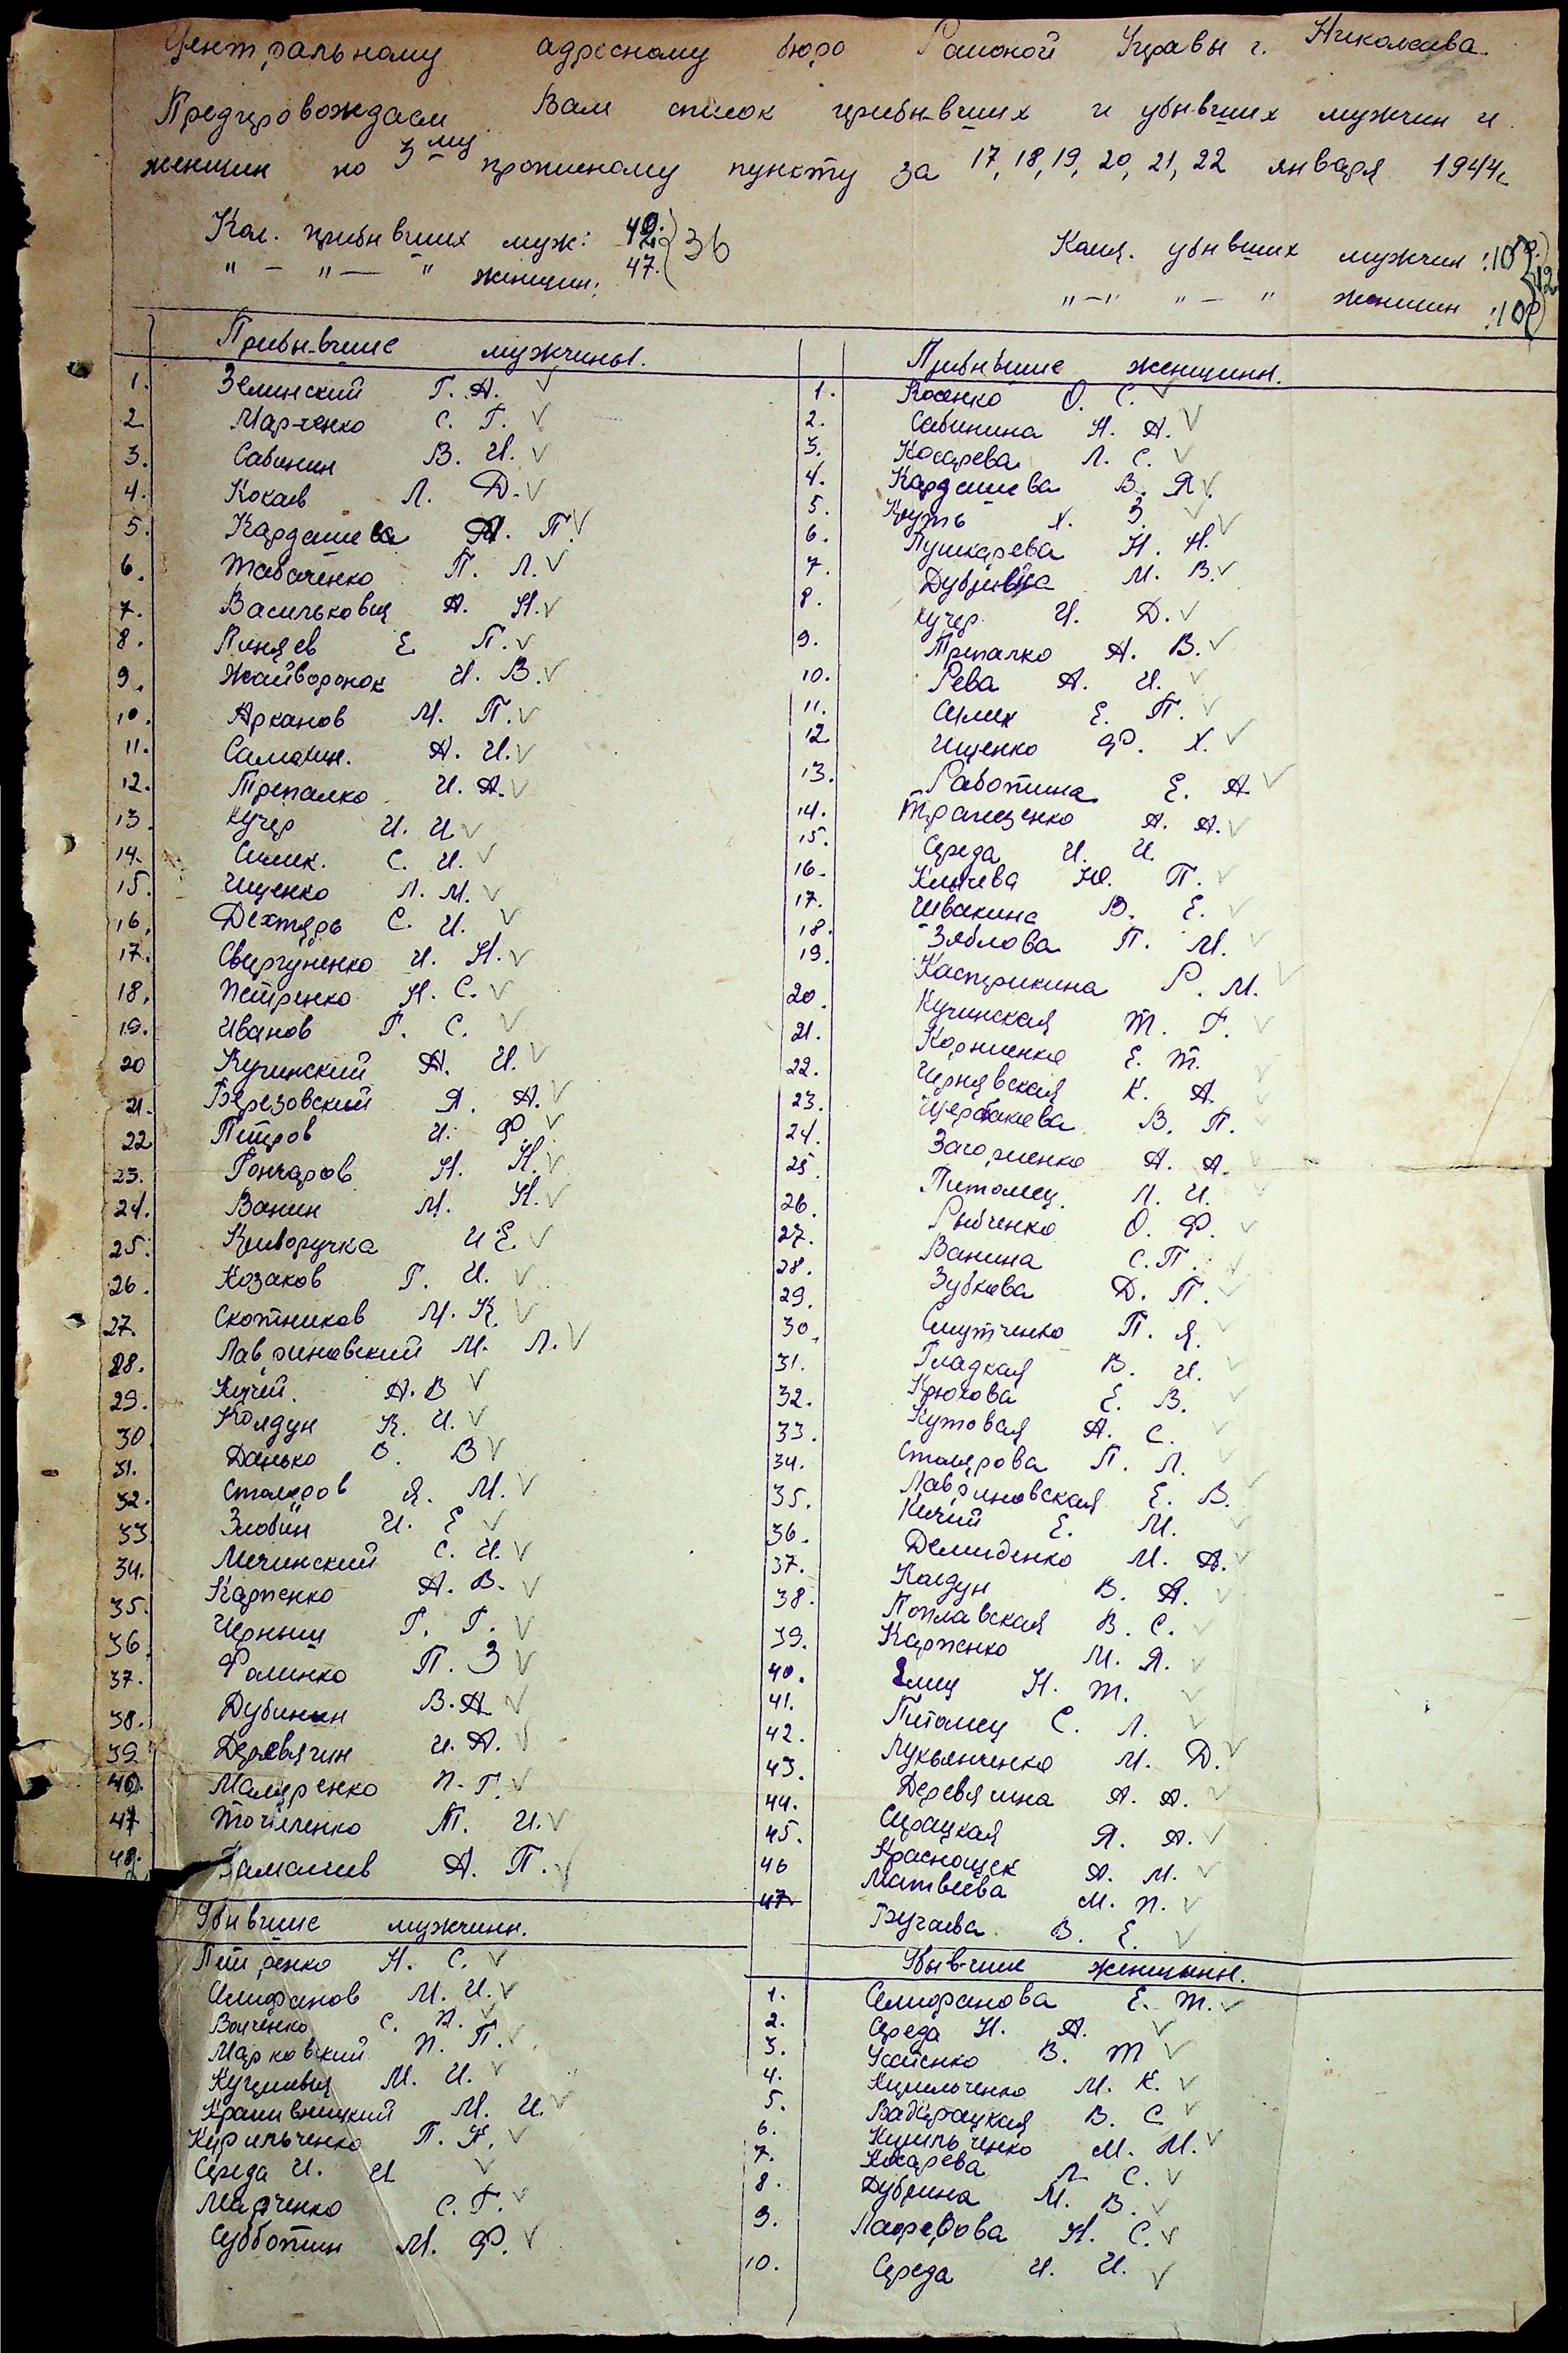 Центральному адресному бюро Районой Управы г. Николаева.
Предпровождаем Вам список прибывших и убывших мужчин и
женщин по 3му прописному пункту за 17, 18, 19, 20, 21, 22 января 1944г
Кол. прибывших муж: 42. 36
" — " — " женщин: 47.
Колич. убывших мужчин: 10 12
" — " " — " женщин: 10
Прибывшие мужчины.
1. Зелинский Г. А.
2 Марченко С. Г.
3. Сабинин В. И.
4. Кокаев Л. Д.
5. Кардашева А. П.
6. Табаченко П. Л.
7. Васильковец А. Н.
8. Пиняев Е П.
9. Жайворонок И. В.
10. Арканов М. П.
11. Самохин. А. И.
12. Трепалко И. А.
13. Кучер И. И
14. Симик. С. И.
15. Ищенко Л. М.
16. Дехтярь С. И.
17. Свиргуненко И. Н.
18. Петренко Н. С.
19. Иванов Г. С.
20 Кучинский А. И.
21. Березовский Я. А.
22 Петров И. Ф
23. Гончаров Н. Н.
24. Ванин М. Н.
25. Криворучка И Е.
26. Козаков Г. И.
27. Скотников М. К.
28. Лавриновский М. Л.
29. Кичий. А. В
30 Колдун К. И.
31. Данько В. В
32. Столяров Я. М.
33 Зиовин И. Е
34. Мичинский С. И.
35. Карпенко А. В.
36. Черныш Г. Г.
37. Фоминко П. З
38. Дубинин В. А
39 Деревягин И. А.
40. Маляренко П. Г.
41 Точиленко Т. И.
42. Гамашев А. П.
Прибывшие женщины.
1. Косенко О. С.
2. Сабинина Н. А.
3. Косарева Л. С.
4. Кардашева В. Я.
5. Куть Х. З.
6. Пушкарева Н. Н.
7. Дубинина М. В.
8. Кучер И. Д.
9. Трепалко А. В.
10. Рева А. И.
11. Симик Е. П.
12. Ищенко Ф. Х.
13. Работина Е. А
14. Тращенко А. А.
15. Середа И. И.
16. Клычева Ю. П.
17. Швакина В. Е.
18. Зяблова П. М.
19. Кастрикина Р. М.
20. Кучинская Т. Г.
21. Корниенко Е. Т.
22. Чернявская К. А.
23. Щербакова В. П.
24. Загорненко А. А.
25 Питомец Л. И.
26. Рыбченко О. Ф.
27. Ванина С. П.
28. Зубкова Д. П.
29. Смутченко П. Я.
30. Гладкая В. И.
31. Крюкова Е. В.
32. Кутовая А. С.
33. Столярова П. Л.
34. Лавриновская Е. В.
35. Кичий Е. М.
36. Демиденко М. А.
37. Колдун В. А.
38. Поплавская В. С.
39. Карпенко М. Я.
40. Емец Н. Т.
41. Питомец С. Л.
42. Лукьянченко М. Д.
43. Деревягина А. А.
44. Сирацкая Я. А.
45. Краснощек А. М.
46 Матвеева М. П.
47. Бугаева В. Е.
Убывшие мужчины.
Петренко Н. С.
Селифанов М. И.
Волченко С. П.
Марковский П. П.
Куцневец М. И.
Крапивницкий М. И.
Кирильченко П. К.
Середа И. И
Марченко С. Г.
Субботин М. Ф.
Убывшие женщины.
1. Селифанова Е. Т.
2. Середа Н. А.
3. Усатенко В. Т
4. Кирильченко М. К.
5. Вабирацкая В. С
6. Кирильченко М. М.
7. Косарева Л С.
8. Дубрина М. В.
9. Лаферова Н. С.
10. Середа И. И.